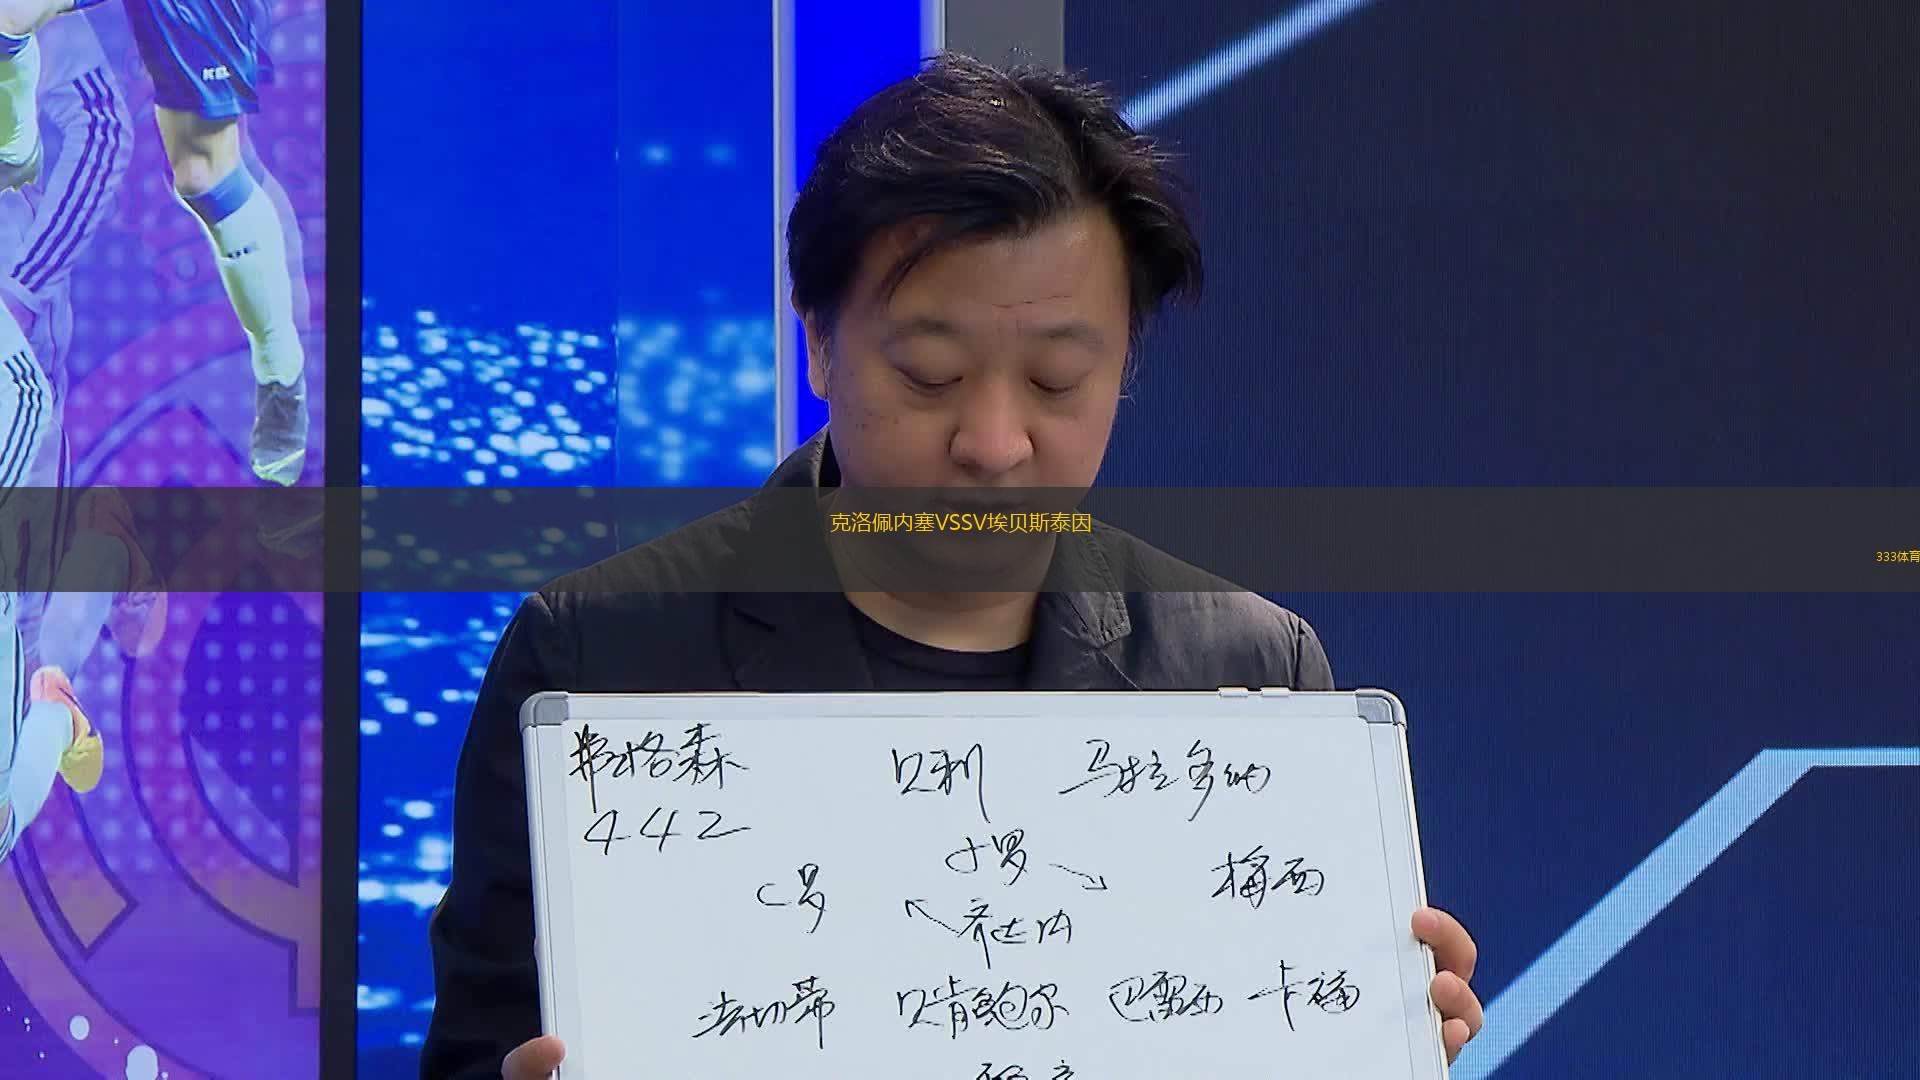 克洛佩内塞VSSV埃贝斯泰因
333体育
弗格森 贝利 马拉多纳
442
小罗
C罗 梅西
齐达内
法切蒂 贝肯鲍尔 巴雷西 卡福